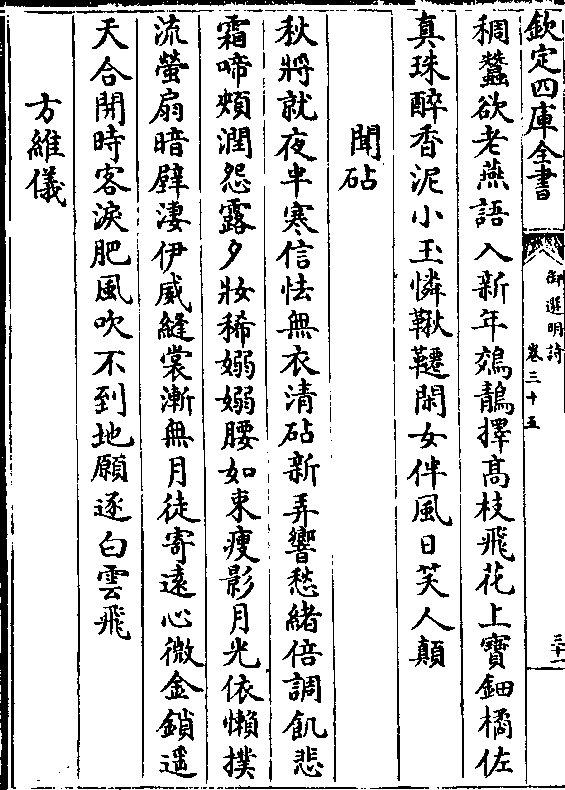 欽定四庫全書
御選明詩
卷三十五
三十一
稠蠶欲老燕語入新年鵁鶄擇高枝飛花上寶鈿橘佐
真珠醉香泥小玉憐鞦韆閑女伴風日笑人顛
聞砧
秋將就夜半寒信怯無衣清砧新弄響愁緒倍調飢悲
霜啼頰潤怨露夕妝稀嫋嫋腰如束瘦影月光依懶撲
流螢扇暗壁淒伊威縫裳漸無月徒寄遠心微金鎖遥
天合開時客淚肥風吹不到地願逐白雲飛
方維儀